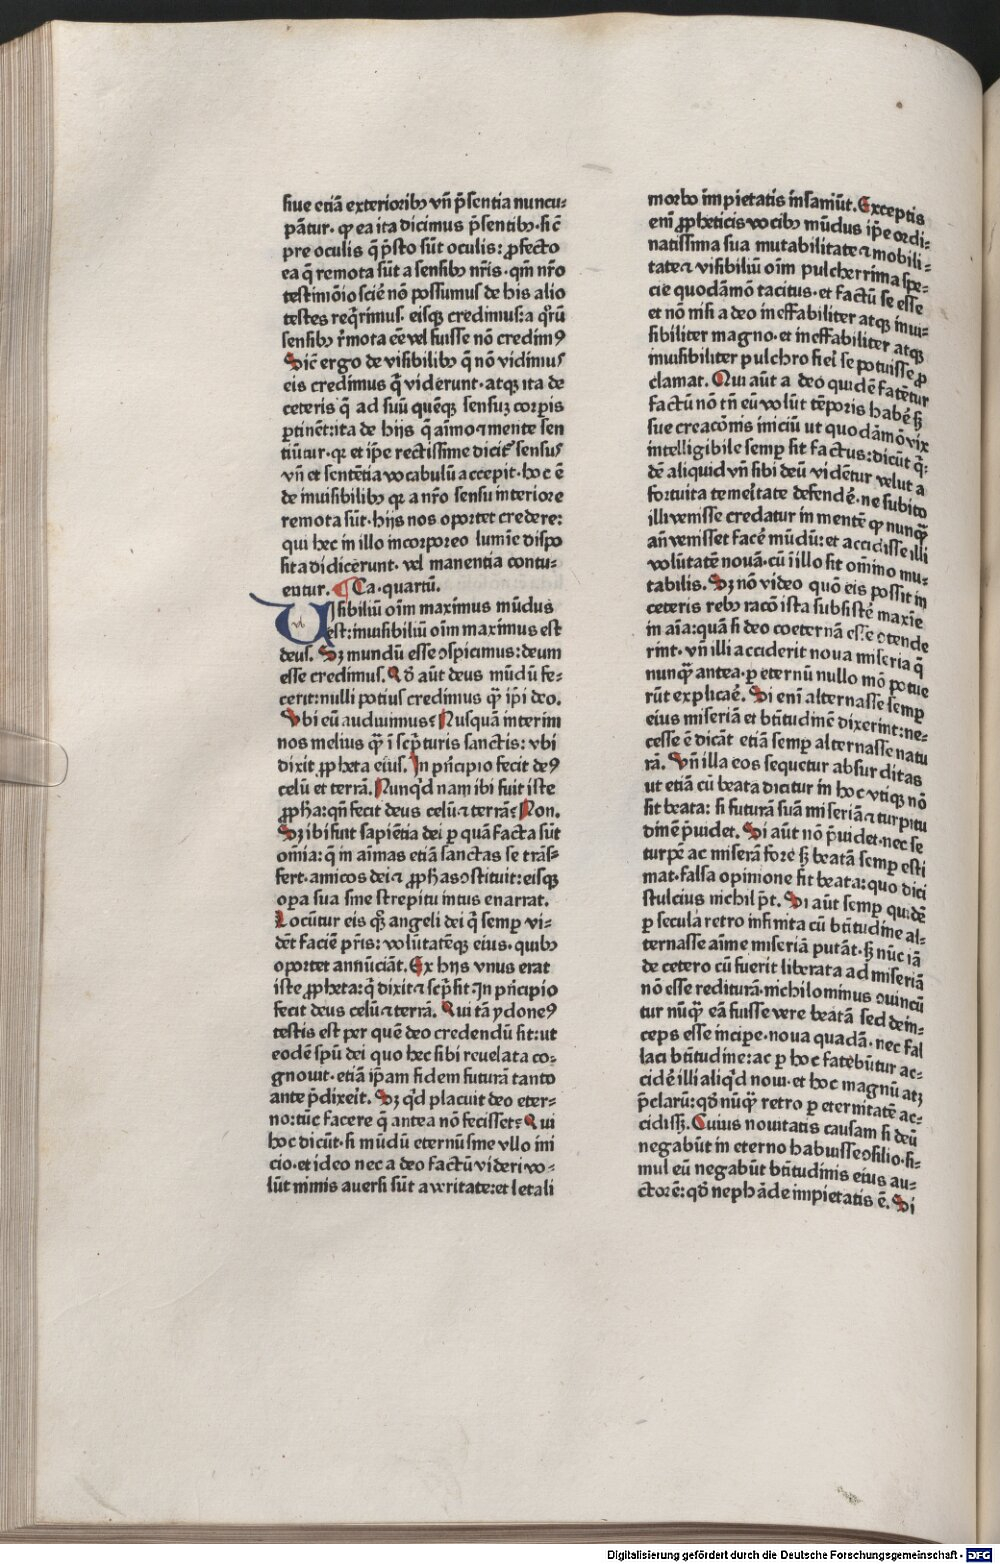 siue etiā exterioribꝰ vñ p̄sentia nuncu-
pātur. ꝙ ea ita dicimus p̄sentibꝰ. sic̄
pre oculis q̄ p̄sto sūt oculis: ꝓfecto
ea q̄ remota sūt a sensibꝰ nr̄is. qm̄ nr̄o
testimōio sciē nō possumus de his alio
testes reqͥrimus. eisqꝫ credimus: a qͦrū
sensibꝰ r̄mota eē vel fuisse nō credimꝰ
Sic̄ ergo de visibilibꝰ q̄ nō vidimus
eis credimus qͥ viderunt. atqꝫ ita de
ceteris q̄ ad suū quēqꝫ sensuꝫ corpis
ꝑtinēt: ita de hijs q̄ aīmo ⁊ mente sen
tiūtur. qꝛ et ip̄e rectissime dicitͬ sensus
vñ et sentētia vocabulū accepit. hoc ē
de inuisibilibꝰ qꝛ a nr̄o sensu interiore
remota sūt. hijs nos oportet credere:
qui hec in illo incorporeo lumīe dispo
sita didicerunt. vel manentia contu-
entur. ¶ Ca. quartū.
Uisibiliū oīm maximus mūdus
est: inuisibiliū oīm maximus est
deus. Sꝫ mundū esse ɔspicimus: deum
esse credimus. Qđ aūt deus mūdū fe-
cerit: nulli potius credimus qͣꝫ ip̄i deo.
Vbi eū audiuimus? Nusquā interim
nos melius qͣꝫ ī scpͥturis sanctis: vbi
dixit ꝓpheta eius. In pͥncipio fecit deꝰ
celū et terrā. Nunqͥd nam ibi fuit iste
ꝓpha: qn̄ fecit deus celū ⁊ terrā? Non.
Sꝫ ibi fuit sapiētia dei ꝑ quā facta sūt
om̄ia: q̄ in aīmas etiā sanctas se trās-
fert. amicos dei ⁊ ꝓphas ɔstituit: eisqꝫ
oꝑa sua sine strepitu intus enarrat.
Locūtur eis qͦꝫ angeli dei qͥ semꝑ vi-
dēt faciē pr̄is: volūtatēqꝫ eius. quibꝰ
oportet annūciāt. Ex hijs vnus erat
iste ꝓpheta: qͥ dixit ⁊ scpͥsit In pͥncipio
fecit deus celū ⁊ terrā. Qui tā ydoneꝰ
testis est per quē deo credendū sit: ut
eodē spū dei quo hec sibi reuelata co-
gnouit. etiā ip̄am fidem futurā tanto
ante p̄dixerit. Sꝫ qͥd placuit deo eter-
no: tūc facere q̄ antea nō fecisset? Qui
hoc dicūt. si mūdū eternū sine vllo ini
cio. et ideo nec a deo factū videri vo-
lūt nimis auersi sūt a veritate: et letali
morbo impietatis insaniūt. Exceptis
enī ꝓpheticis vocibꝰ mūdus ip̄e ordi-
natissima sua mutabilitate ⁊ mobili-
tate ⁊ visibiliū oīm pulcherrima spe-
cie quodāmō tacitus. et factū se esse
et nō nisi a deo ineffabiliter atqꝫ inui-
sibiliter magno. et ineffabiliter atqꝫ
inuisibiliter pulchro fieri se potuisse ꝓ
clamat. Qui aūt a deo quidē fatētur
factū nō tn̄ eū volūt tēporis habē sꝫ
sue creacōnis iniciū ut quodāmō vix
intelligibile semꝑ sit factus: dicūt qͥ-
dē aliquid vñ sibi deū vidētur velut a
fortuita temeͥtate defendē. ne subito
illi venisse credatur in mentē ꝙ nunqͣꝫ
añ venisset facē mūdū: et accidisse illi
volūtatē nouā. cū ī illo sit om̄ino mu-
tabilis. Sꝫ nō video quō eis possit in
ceteris rebꝰ racō ista subsistē maxīe
in aīa: quā si deo coeternā esse ɔtende
rint. vñ illi acciderit noua miseria q̄
nunqͣꝫ antea. ꝑ eternū nullo mō potue
rūt explicaē. Si enī alternasse semꝑ
eius miseriā et btītudinē dixerint: ne-
cesse ē dicāt etiā semꝑ alternasse natu
rā. Vñ illa eos sequetur absurditas
ut etiā cū beata dicitur in hoc vtiqꝫ nō
sit beata: si futurā suā miseriā ⁊ turpitu
dinē p̄uidet. Si aūt nō p̄uidet. nec se
turpē ac miserā fore sꝫ beatā semꝑ esti
mat. falsa opinione sit beata: quo dici
stulcius nichil pt̄. Si aūt semꝑ quidē
ꝑ secula retro infinita cū btītudine al-
ternasse aīme miseriā putāt. sꝫ nūc iā
de cetero cū fuerit liberata ad miseriā
nō esse redituraꝫ. nichilominus ɔuincū
tur nūqͣꝫ eā fuisse vere beatā sed dein-
ceps esse incipe. noua quadā. nec fal
laci btītudine: ac ꝑ hoc fatebūtur ac-
cidē illi aliqͥd noui. et hoc magnū atqꝫ
p̄clarū: qđ nūqͣꝫ retro ꝑ eternitatē ac-
cidissꝫ. Cuius nouitatis causam si deū
negabūt in eterno habuisse ɔsilio. si-
mul eū negabūt btītudinis eius au-
ctorē: qđ nephāde impietatis ē. Si
Digitalisierung gefördert durch die Deutsche Forschungsgemeinschaft - DFG